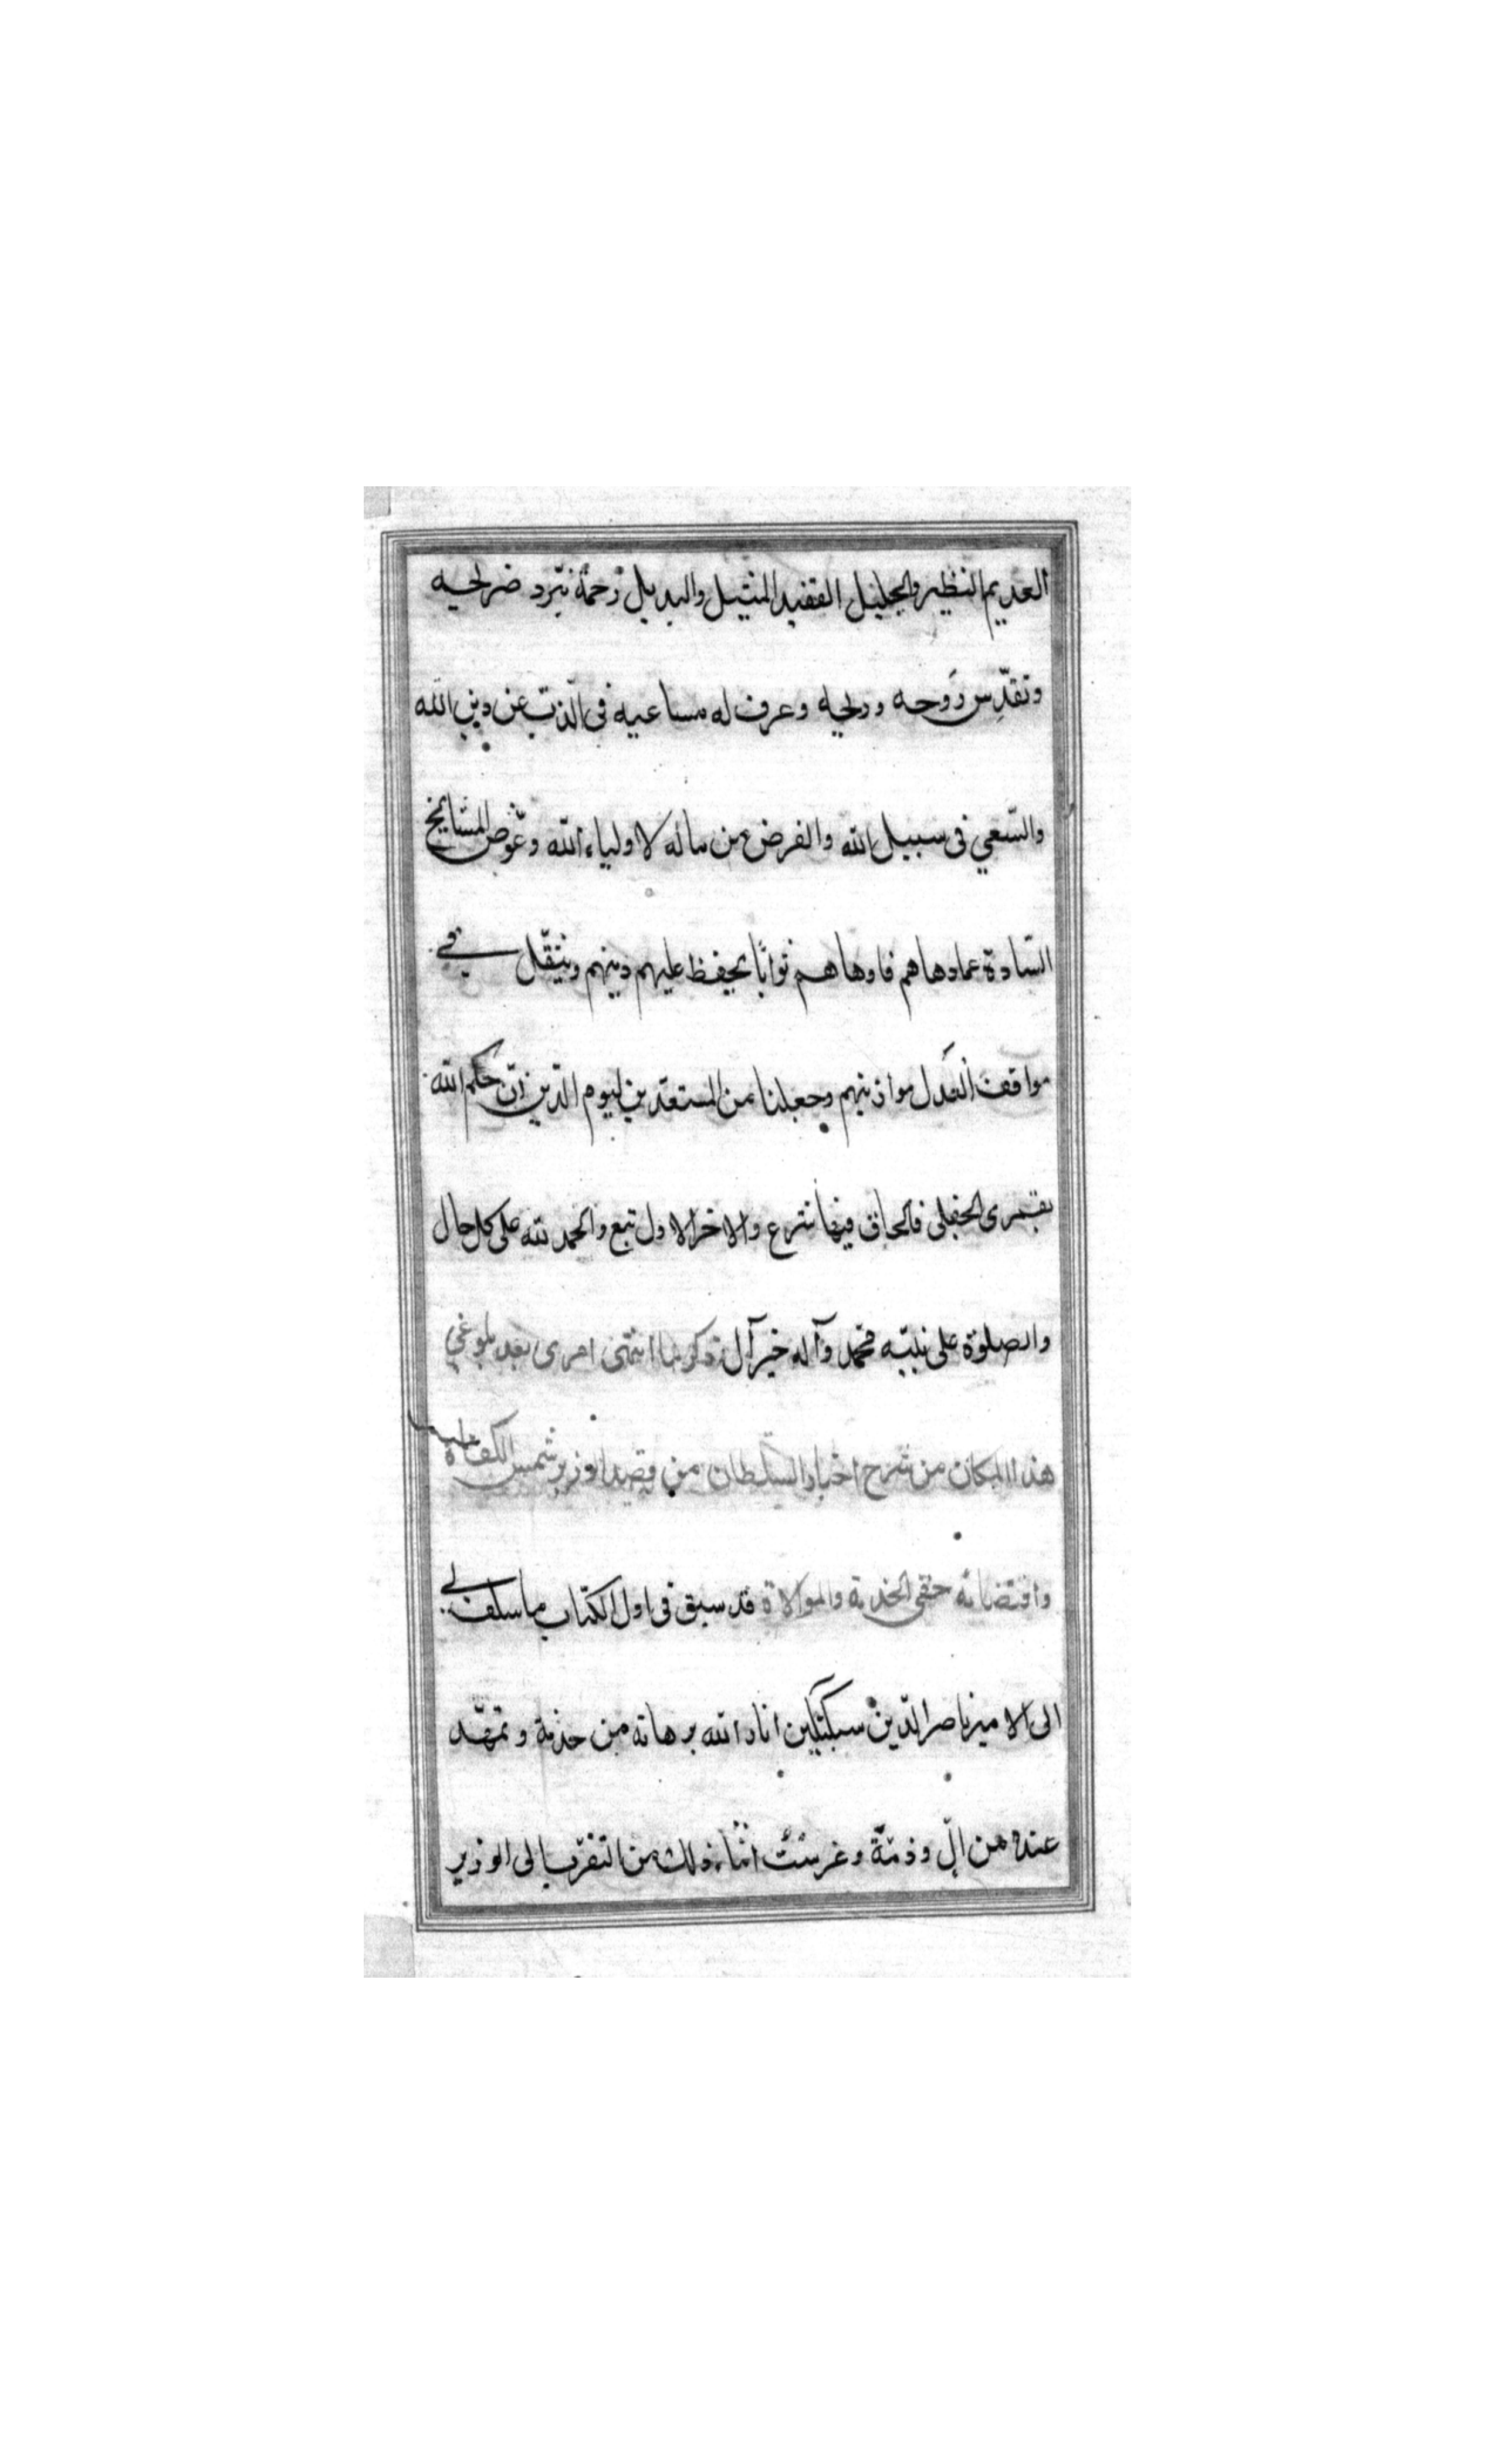 العديم النظير والجليل الفقيد المثيل والبديل رحمة تبرّد ضريحيه
وتقدِّس رَوحه وريحه وعرف له مساعيه فى الذّب عن دين الله
والسّعي فى سبيل الله والفرض من ماله لاولياء الله وعوّض المشايخ
السّادة عما دهاهم فاوهاهم ثوابًا يحفظ عليهم دينهم ويثقّل في
مواقف العَدل موازينهم وجعلنا من المستعدّين ليوم الدّين انّ حكم الله
الجفلى فالخلق فيها شرع والاخر الاول تبع والحمد لله على كل حال
والصلوة على نبيّه محمّد وآله خير آل ذكر ما انتهى امرى بعد بلوغي
هذا المكان من شرح اخبار السّلطان من قصد الوزير شمس الكفاة
واقتضائه حقى الخدمة والموالاة قد سبق فى اول الكتاب ما سلف لي
الى الامير ناصر الدّين سبكتكين انار الله برهانه من خدمة وتمهّد
عنده من الّ وذمّة وغرست اثناء ذلك من التقرّب الى الوزير